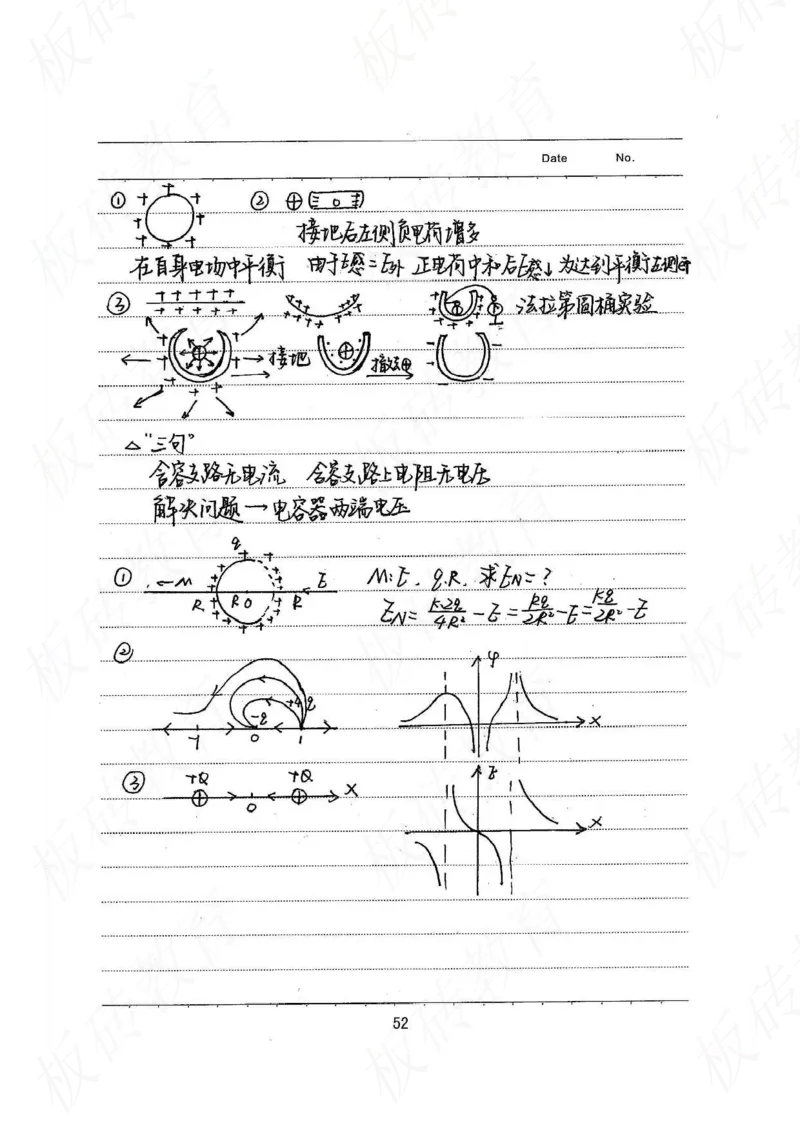 Date No.
① ②
接地后左侧负电荷增多
在自身电场中平衡 由于E感=E外 正电荷中和后E感↓ 为达到平衡左侧
③ 法拉第圆桶实验
接地
△"三句"
含容支路无电流 含容支路上电阻无电压
解决问题→电容器两端电压
q
① ←M R R O R E M:E. q.R. 求E_N=?
E_N= k2q/4R² -E= kq/2R² -E= kq/2R² -E
② φ
-q +4q x
-1 0 1
③ +Q +Q X E
O x
52
板砖教育